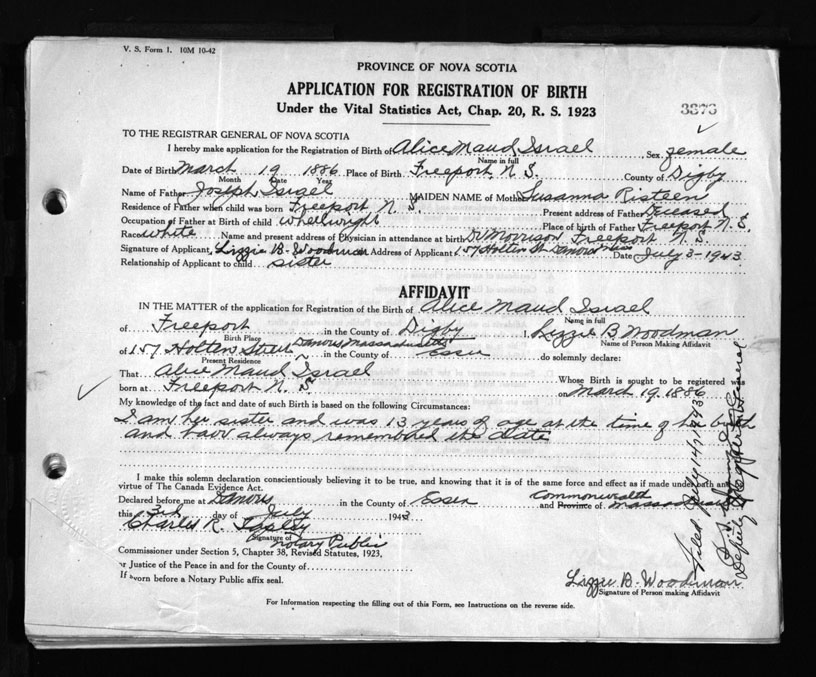 V. S. Form 1. 10M 10-42
PROVINCE OF NOVA SCOTIA
APPLICATION FOR REGISTRATION OF BIRTH
Under the Vital Statistics Act, Chap. 20, R. S. 1923
3376
TO THE REGISTRAR GENERAL OF NOVA SCOTIA
I hereby make application for the Registration of Birth of Alice Maud Israel Sex female
Name in full
Date of Birth March 19 1886 Place of Birth Freeport N. S. County of Digby
Month Date Year
Name of Father Joseph Israel MAIDEN NAME of Mother Susanna Risteen
Residence of Father when child was born Freeport N. S. Present address of Father Deceased
Occupation of Father at Birth of child wheelwright Place of birth of Father Freeport N. S.
Race white Name and present address of Physician in attendance at birth Dr Morrison Freeport N. S.
Signature of Applicant Lizzie B. Woodman Address of Applicant 157 Holten St Danvers Mass Date July 3-1943
Relationship of Applicant to child sister
AFFIDAVIT
IN THE MATTER of the application for Registration of the Birth of Alice Maud Israel
Name in full
of Freeport in the County of Digby I, Lizzie B Woodman
Birth Place Name of Person Making Affidavit
of 157 Holten Street Danvers Massachusetts in the County of Essex do solemnly declare:
Present Residence
That Alice Maud Israel Whose Birth is sought to be registered was
born at Freeport N. S. on March 19, 1886
My knowledge of the fact and date of such Birth is based on the following Circumstances:
I am her sister and was 13 years of age at the time of her birth
and have always remembered the date
I make this solemn declaration conscientiously believing it to be true, and knowing that it is of the same force and effect as if made under oath and
virtue of The Canada Evidence Act.
Declared before me at Danvers in the County of Essex and Commonwealth Province of Massachusetts
this 3rd day of July 1943
Charles R. Tapley
Signature of
Notary Public
Commissioner under Section 5, Chapter 38, Revised Statutes, 1923,
or Justice of the Peace in and for the County of
If sworn before a Notary Public affix seal.
Lizzie B. Woodman
Signature of Person making Affidavit
For Information respecting the filling out of this Form, see Instructions on the reverse side.
Filed July 14/1943
Deputy Registrar General